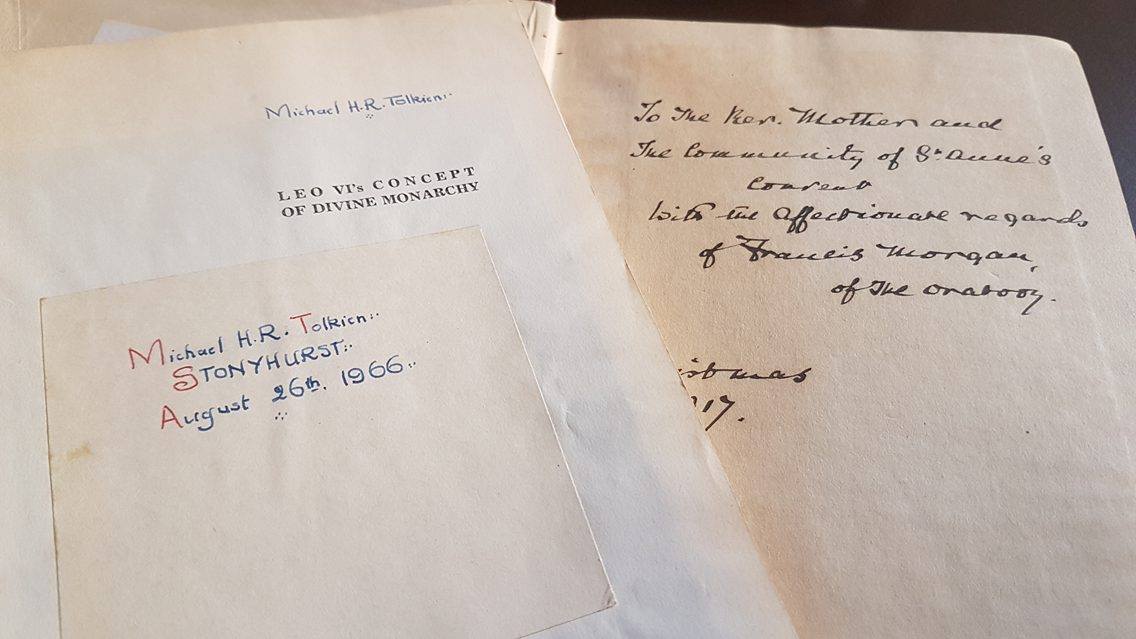 Michael H.R. Tolkien
LEO VI's CONCEPT
OF DIVINE MONARCHY
Michael H.R. Tolkien
STONYHURST
August 26th. 1966
To The Rev. Mother and
The Community of St Anne's
Convent
With the affectionate regards
of Francis Morgan,
of The Oratory.
istmas
17.